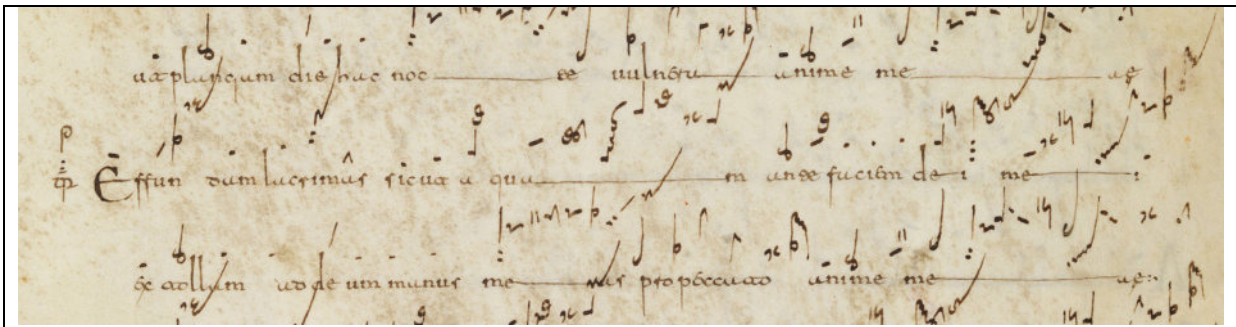 planctum die hac noc te uulnera anime me ae
Effun dam lacrimas sicut a qua m ante faciem de i me i
et tollam ad deum manus me as pro peccato anime me ae